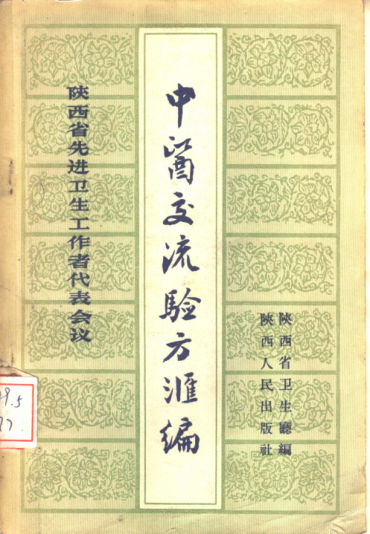 陝西省先进卫生工作者代表会议
中醫交流驗方滙編
陝西省卫生廳編
陝西人民出版社
9.5